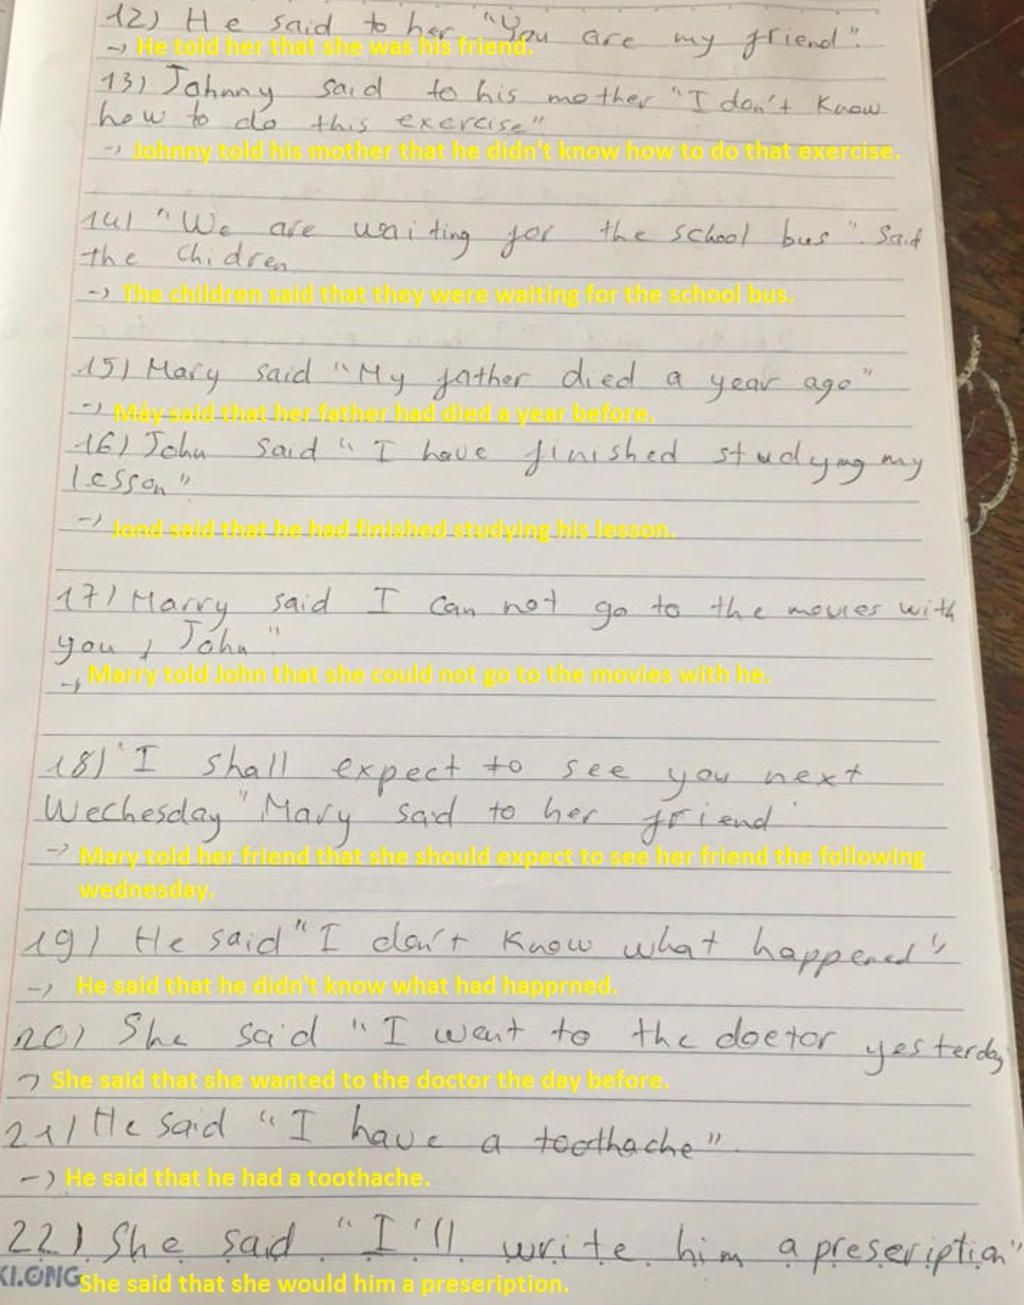 12) He said to her "You are my friend".
-) He told her that she was his friend.
13) Johnny said to his mother "I don't know
how to do this exercise"
-) Johnny told his mother that he didn't know how to do that exercise.
14) "We are waiting for the school bus". Said
the chidren
-) The children said that they were waiting for the school bus.
15) Mary said "My father died a year ago"
-) Máy said that her father had died a year before.
16) John said "I have finished studying my
lesson"
-) Jond said that he had finished studying his lesson.
17) Marry said I can not go to the movies with
you, John"
-) Marry told John that she could not go to the movies with he.
18) "I shall expect to see you next
Wechesday" Mary said to her friend
-) Mary told her friend that she should expect to see her friend the following
wednesday.
19) He said "I don't know what happened"
-) He said that he didn't know what had happrned.
20) She said "I went to the doctor yesterday
-) She said that she wanted to the doctor the day before.
21) He said "I have a toothache".
-) He said that he had a toothache.
22) She said "I'll write him a preseription"
KLONG She said that she would him a preseription.